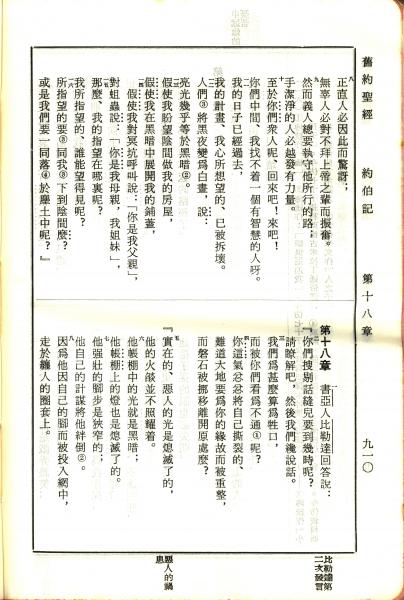 舊約聖經　約伯記　第十八章　九一〇
八 正直人必因此而驚訝；
無辜人必對不拜上帝之輩而振奮。
九 然而義人總要執守他所行的路；
手潔淨的人必越發有力量。
十 至於你們衆人呢、回來吧！來吧！
你們中間、我找不着一個有智慧的人呀。
十一 我的日子已經過去，
我的計畫、我心所想望的、已被拆壞。
十二 人們③將黑夜變爲白晝，說：
亮光幾乎等於黑暗②。
十三 假使我盼望陰間做我的房屋，
假使我在黑暗中展開我的鋪蓋，
十四 假使我對冥坑呼叫說：「你是我父親」，
對蛆蟲說：「你是我母親、我姐妹」，
十五 那麼、我的指望在哪裏呢？
我所指望的、誰能望得見呢？
十六 所指望的要③同我③下到陰間麼？
或是我們要一同落④於塵土中呢？』
第十八章　書亞人比勒達回答說：
二 『你們搜剔話縫兒要到幾時呢？
請瞭解吧，然後我們纔說話。
三 我們爲甚麼算爲牲口，
而被你們看爲不通①呢？
四 你這氣忿忿將自己撕裂的、
難道大地要爲你的緣故而被重整，
而磐石被挪移離開原處麼？
五 『實在的、惡人的光是熄滅了的，
他的火燄並不照耀着。
六 他帳棚中的光就是黑暗；
他帳棚上的燈也是熄滅了的。
七 他強壯的腳步是狹窄的；
他自己的計謀將他絆倒②。
八 因爲他因自己的腳而被投入網中，
走於纏人的圈套上。
比勒達第二次發言
惡人的禍患